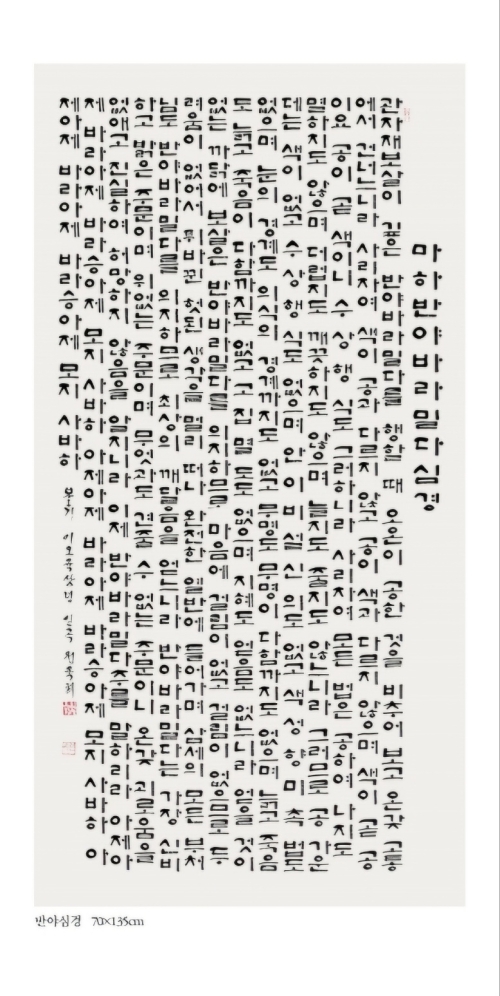 마하반야바라밀다심경
관자재보살이 깊은 반야바라밀다를 행할 때 오온이 공한 것을 비추어 보고 온갖 고통
에서 건너느니라 사리자여 색이 공과 다르지 않고 공이 색과 다르지 않으며 색이 곧 공
이요 공이 곧 색이니 수 상 행 식도 그러하니라 사리자여 모든 법은 공하여 나지도
멸하지도 않으며 더럽지도 깨끗하지도 않으며 늘지도 줄지도 않느니라 그러므로 공 가운
데는 색이 없고 수 상 행 식도 없으며 안 이 비 설 신 의도 없고 색 성 향 미 촉 법도
없으며 눈의 경계도 의식의 경계까지도 없고 무명도 무명이 다함까지도 없으며 늙고 죽음
도 늙고 죽음이 다함까지도 없고 고 집 멸 도도 없으며 지혜도 얻음도 없느니라 얻을 것이
없는 까닭에 보살은 반야바라밀다를 의지하므로 마음에 걸림이 없고 걸림이 없으므로 두
려움이 없어서 뒤바뀐 헛된 생각을 멀리 떠나 완전한 열반에 들어가며 삼세의 모든 부처
님도 반야바라밀다를 의지하므로 최상의 깨달음을 얻느니라 반야바라밀다는 가장 신비
하고 밝은 주문이며 위없는 주문이며 무엇과도 견줄 수 없는 주문이니 온갖 괴로움을
없애고 진실하여 허망하지 않음을 알지니라 이제 반야바라밀다주를 말하리라 아제아
제 바라아제 바라승아제 모지 사바하 아제아제 바라아제 바라승아제 모지 사바하 아
제아제 바라아제 바라승아제 모지 사바하 불기 이오육삼년 인곡
반야심경 70×135cm